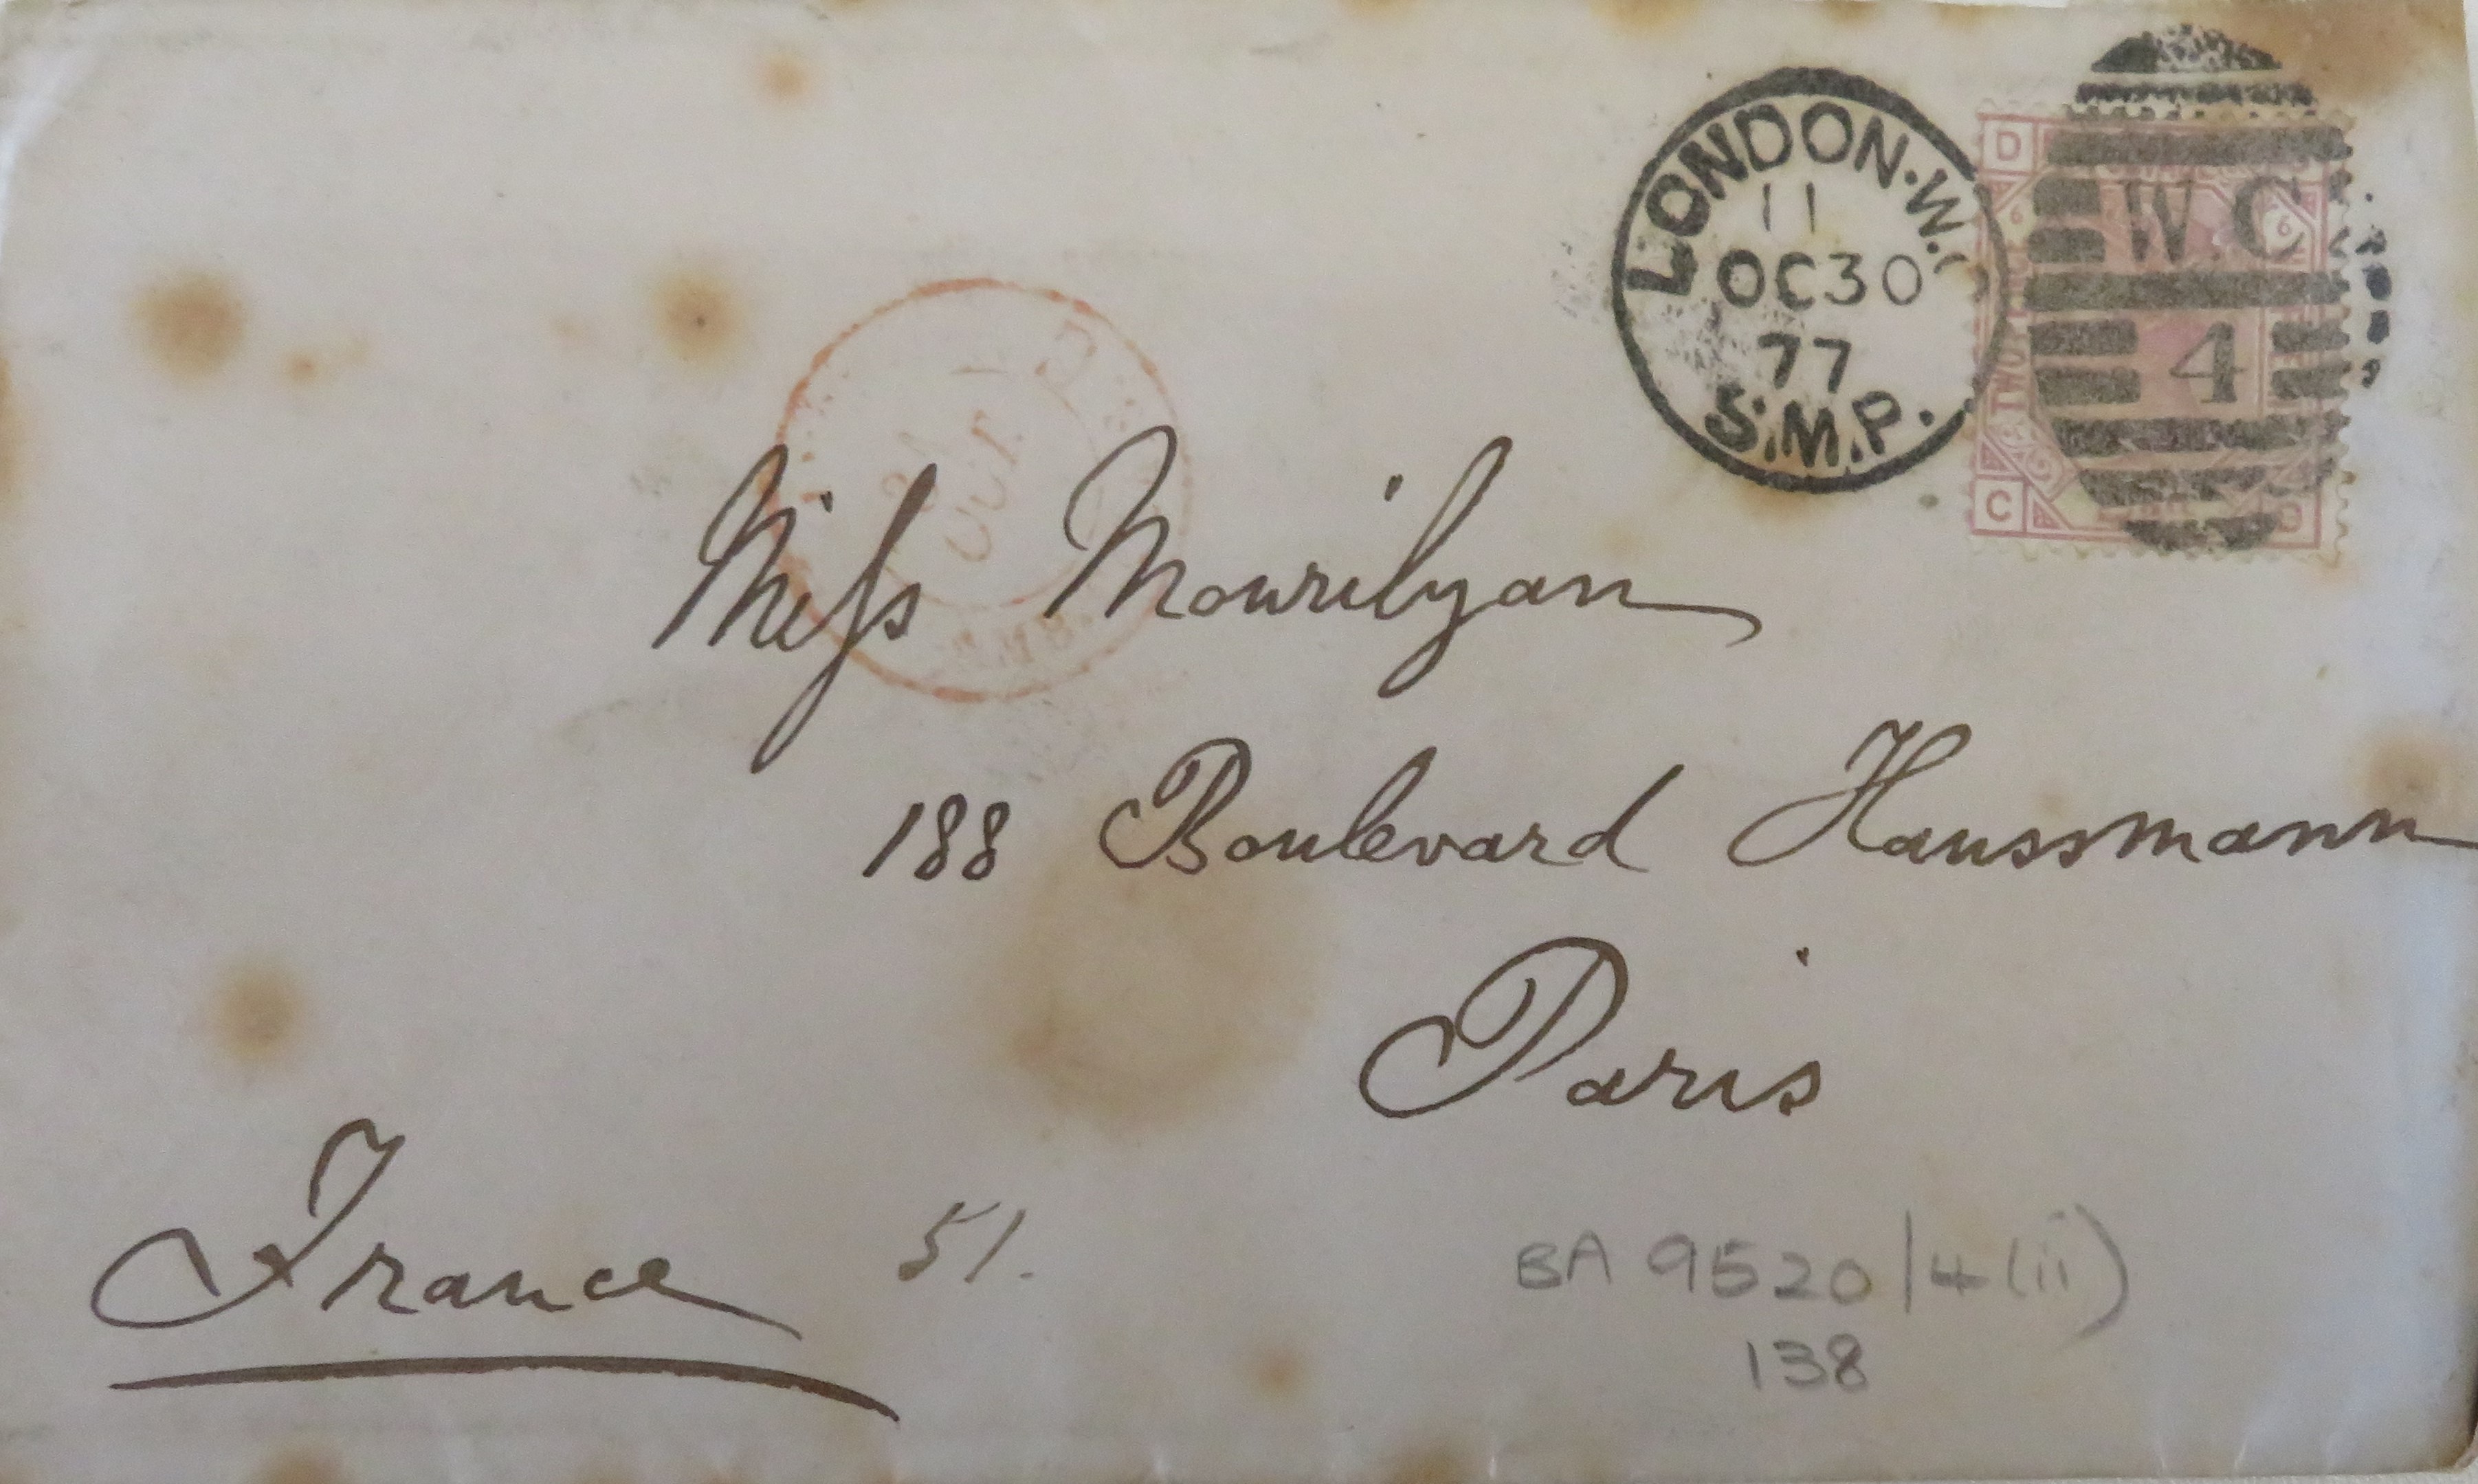 LONDON·W.C
11
OC30
77
S.M.P.
W.C
4
D
6
6
TWO
C
D
Miss Mourilyan
188 Boulevard Haussmann
Paris
France
51.
BA 9520/4(ii)
138